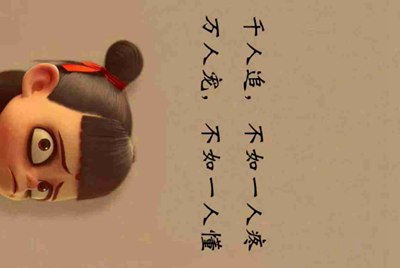 千人追，不如一人疼
万人宠，不如一人懂